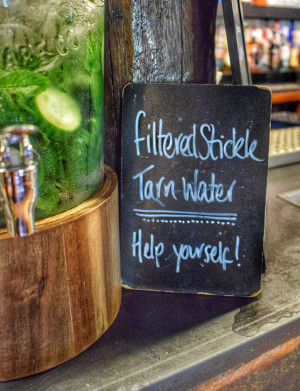 filtered Stickle
Tarn Water
Help yourself!